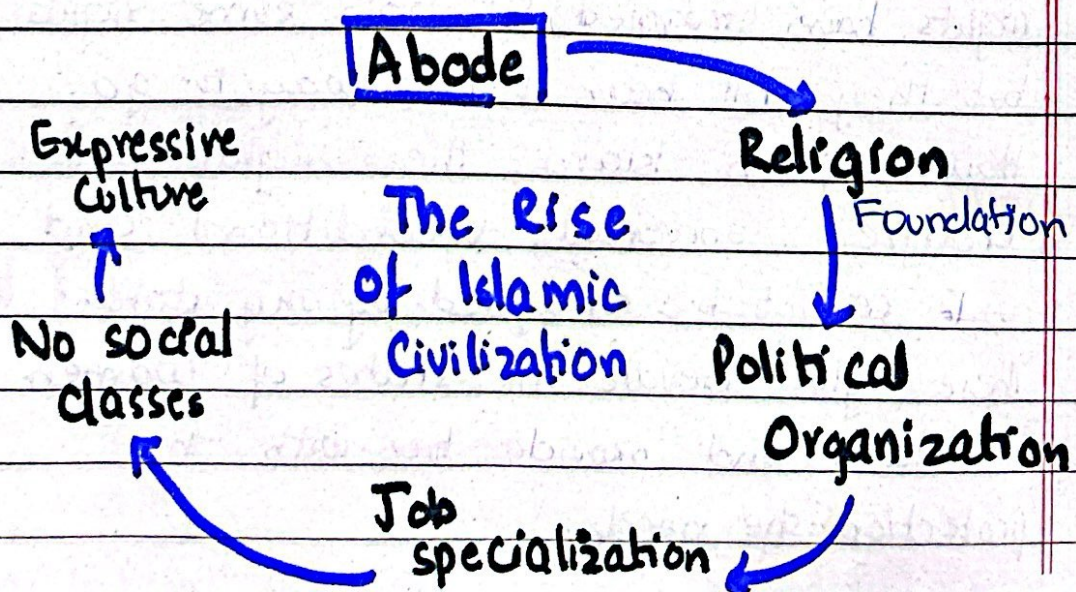 Abode
Religion
Foundation
Political
Organization
Job
specialization
No social
classes
Expressive
Culture
The Rise
Of Islamic
Civilization